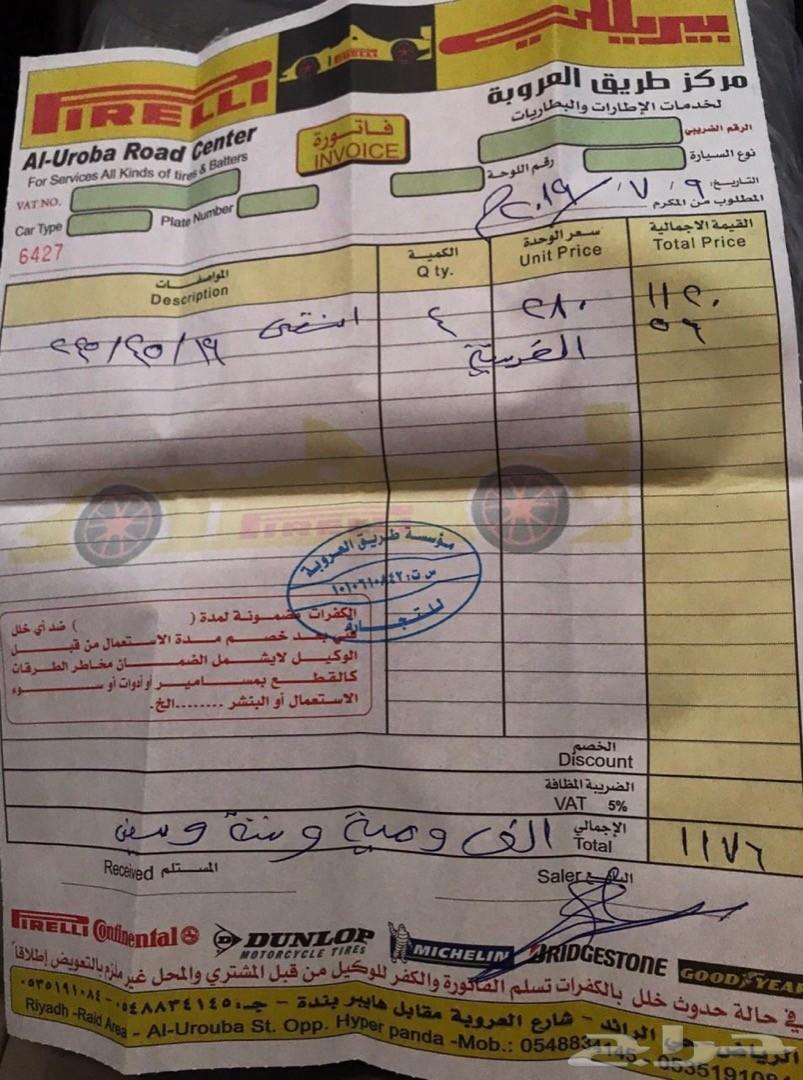 PIRELLI
بيريللي
مركز طريق العروبة
لخدمات الإطارات والبطاريات
Al-Uroba Road Center
For Services All Kinds of tires & Batters
فاتورة
INVOICE
الرقم الضريبي
VAT NO.
نوع السيارة
رقم اللوحة
Car Type
Plate Number
التاريخ: ٩ / ٧ / ٢٠١٩
المطلوب من المكرم
6427
المواصفات
Description
الكمية
Q ty.
سعر الوحدة
Unit Price
القيمة الاجمالية
Total Price
٤ ٢٨٠ ١١٢٠
الضريبة ٥٦
PIRELLI
مؤسسة طريق العروبة
س ت: ١٠١٠٦١٠٨٤٢
للتجارة
الكفرات مضمونة لمدة ( ) ضد أي خلل
فني بعد خصم مدة الاستعمال من قبل
الوكيل لايشمل الضمان مخاطر الطرقات
كالقطع بمسامير أو أدوات أو سوء
الاستعمال أو البنشر ........الخ.
الخصم
Discount
الضريبة المظافة
VAT 5%
الإجمالي
Total
الف ومية وستة وسبعين
١١٧٦
المستلم Received
البائع Saler
PIRELLI Continental DUNLOP MOTORCYCLE TIRES MICHELIN BRIDGESTONE GOODYEAR
في حالة حدوث خلل بالكفرات تسلم الفاتورة والكفر للوكيل من قبل المشتري والمحل غير ملزم بالتعويض إطلاقاً
الرياض - حي الرائد - شارع العروبة مقابل هايبر بندة - جـ: ٠٥٤٨٨٣٤١٤٥ - ٠٥٣٥١٩١٠٨٤
Riyadh -Raid Area - Al-Urouba St. Opp. Hyper panda -Mob.: 0548834145 - 0535191084
حراج